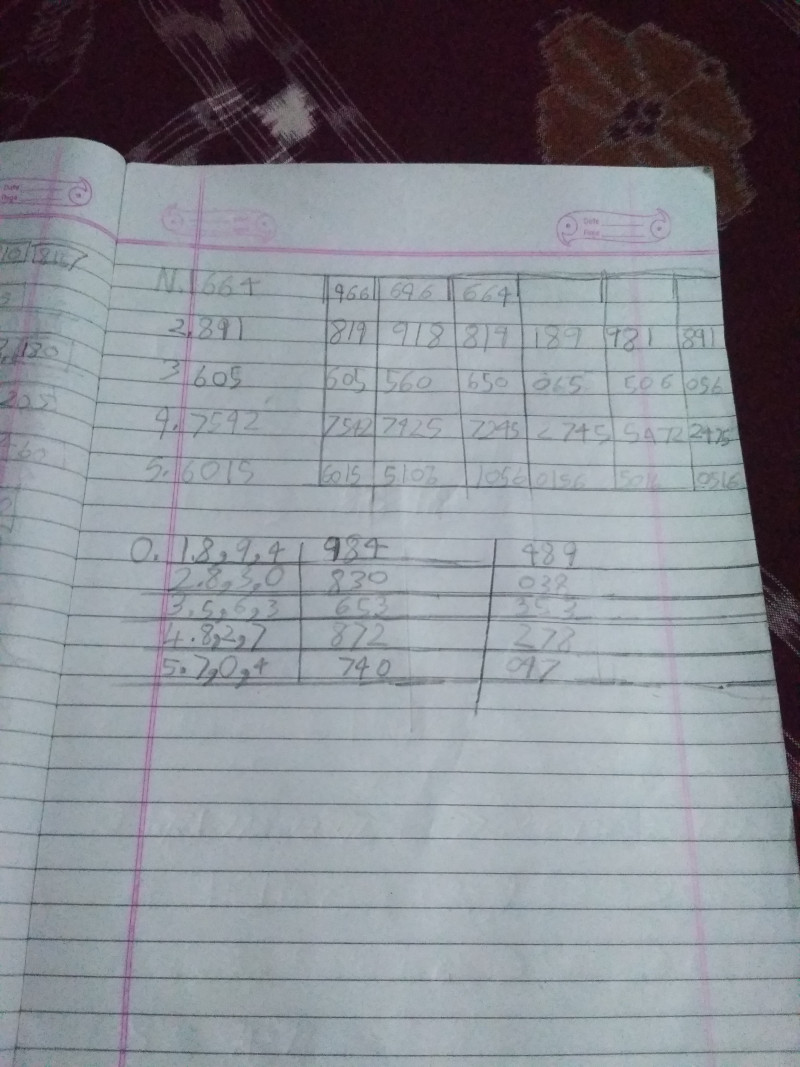 Date
Page
N. 1 664 466 646 664
2. 891 819 918 819 189 981 891
3 605 605 560 650 065 506 056
4. 7542 7542 7425 7245 2745 5472 2475
5. 6015 6015 5106 1056 0156 0516
O. 1. 8, 9, 4 984 489
2. 8, 3, 0 830 038
3. 5, 6, 3 653 353
4. 8, 2, 7 872 278
5. 7, 0, 4 740 047